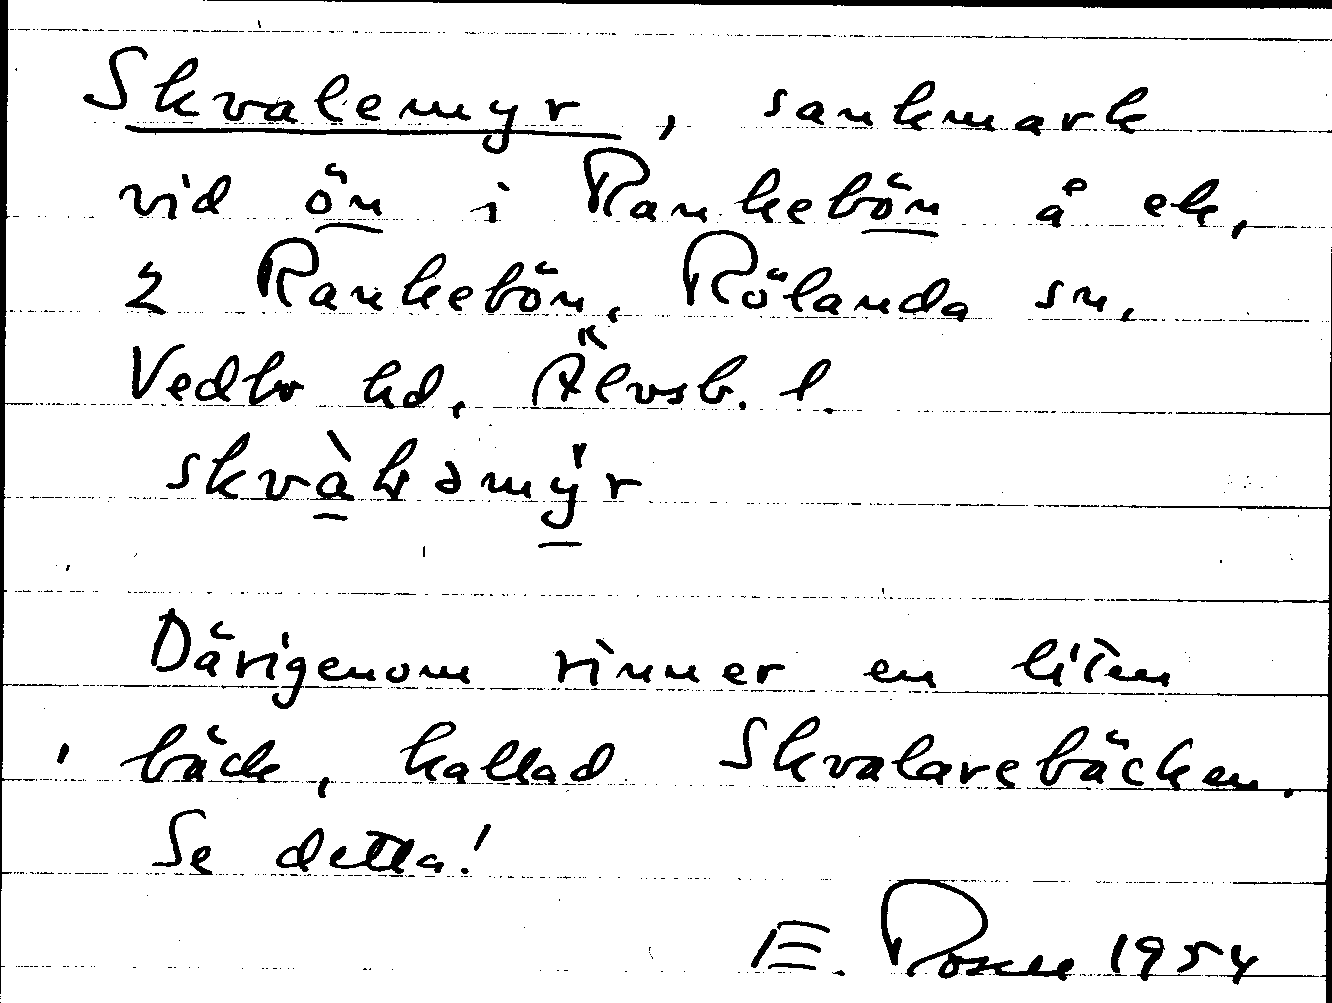 Skvalemyr, sankmark
vid ön i Rankebön å ek.
2 Rankebön, Rölanda sn,
Vedbo hd, Älvsb. l.
skvàləmy̌r
Därigenom rinner en liten
bäck, kallad Skvalarebäcken.
Se detta!
E. Rosell 1954